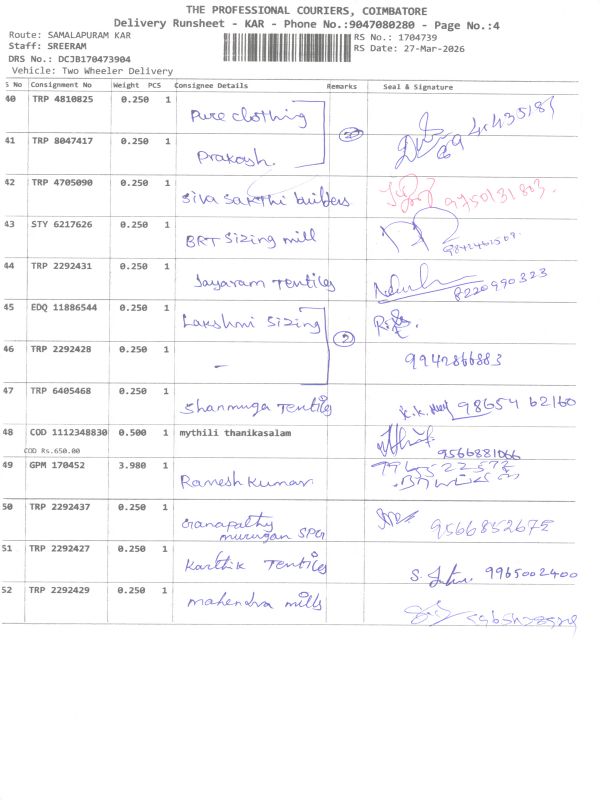 THE PROFESSIONAL COURIERS, COIMBATORE
Delivery Runsheet - KAR - Phone No.:9047080280 - Page No.:4
Route: SAMALAPURAM KAR
Staff: SREERAM
DRS No.: DCJB170473904
Vehicle: Two Wheeler Delivery
RS No.: 1704739
RS Date: 27-Mar-2026
S No Consignment No Weight PCS Consignee Details Remarks Seal & Signature
40 TRP 4810825 0.250 1 Pure clothing
41 TRP 8047417 0.250 1 Prakash.
42 TRP 4705090 0.250 1 Siva Sakthi builders 9750131803
43 STY 6217626 0.250 1 BRT Sizing mill
44 TRP 2292431 0.250 1 Jayaram Textiles 8220990323
45 EDQ 11886544 0.250 1 Lakshmi Sizing 2
46 TRP 2292428 0.250 1 - 9942866883
47 TRP 6405468 0.250 1 Shanmuga Textiles 98654 62160
48 COD 1112348830 0.500 1 mythili thanikasalam 9566881066
COD Rs.650.00
49 GPM 170452 3.980 1 Ramesh Kumar
50 TRP 2292437 0.250 1 Ganapathy
murugan SPG 9566852672
51 TRP 2292427 0.250 1 Karthik Textiles 9965002400
52 TRP 2292429 0.250 1 mahendra mills